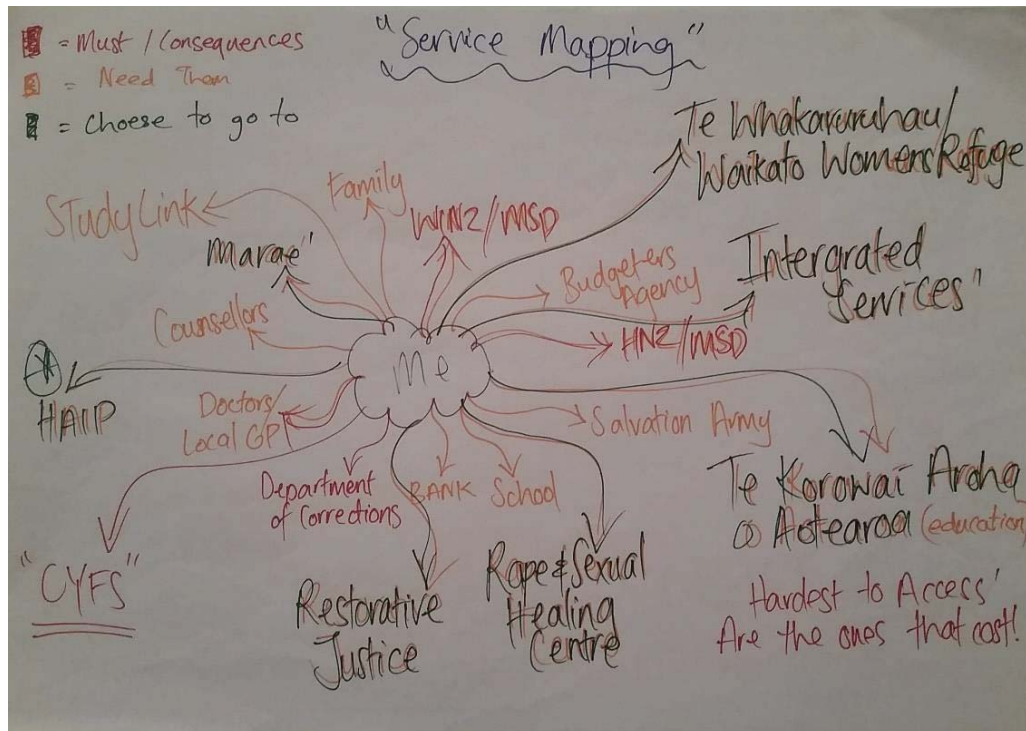 = Must / Consequences
= Need Them
= choese to go to
"Service Mapping"
Te Whakaruruhau/
Waikato Womens Refuge
StudyLink
Family
WINZ/MSD
Marae"
Budgeters
Agency
Intergrated
Services"
Counsellors
HNZ/MSD
Me
HAIP
Doctors/
Local GP
Salvation Army
Department
of Corrections
BANK
School
Te Korowai Aroha
o Aotearoa (education)
"CYFS"
Restorative
Justice
Rape & Sexual
Healing
Centre
Hardest to Access'
Are the ones that cost!